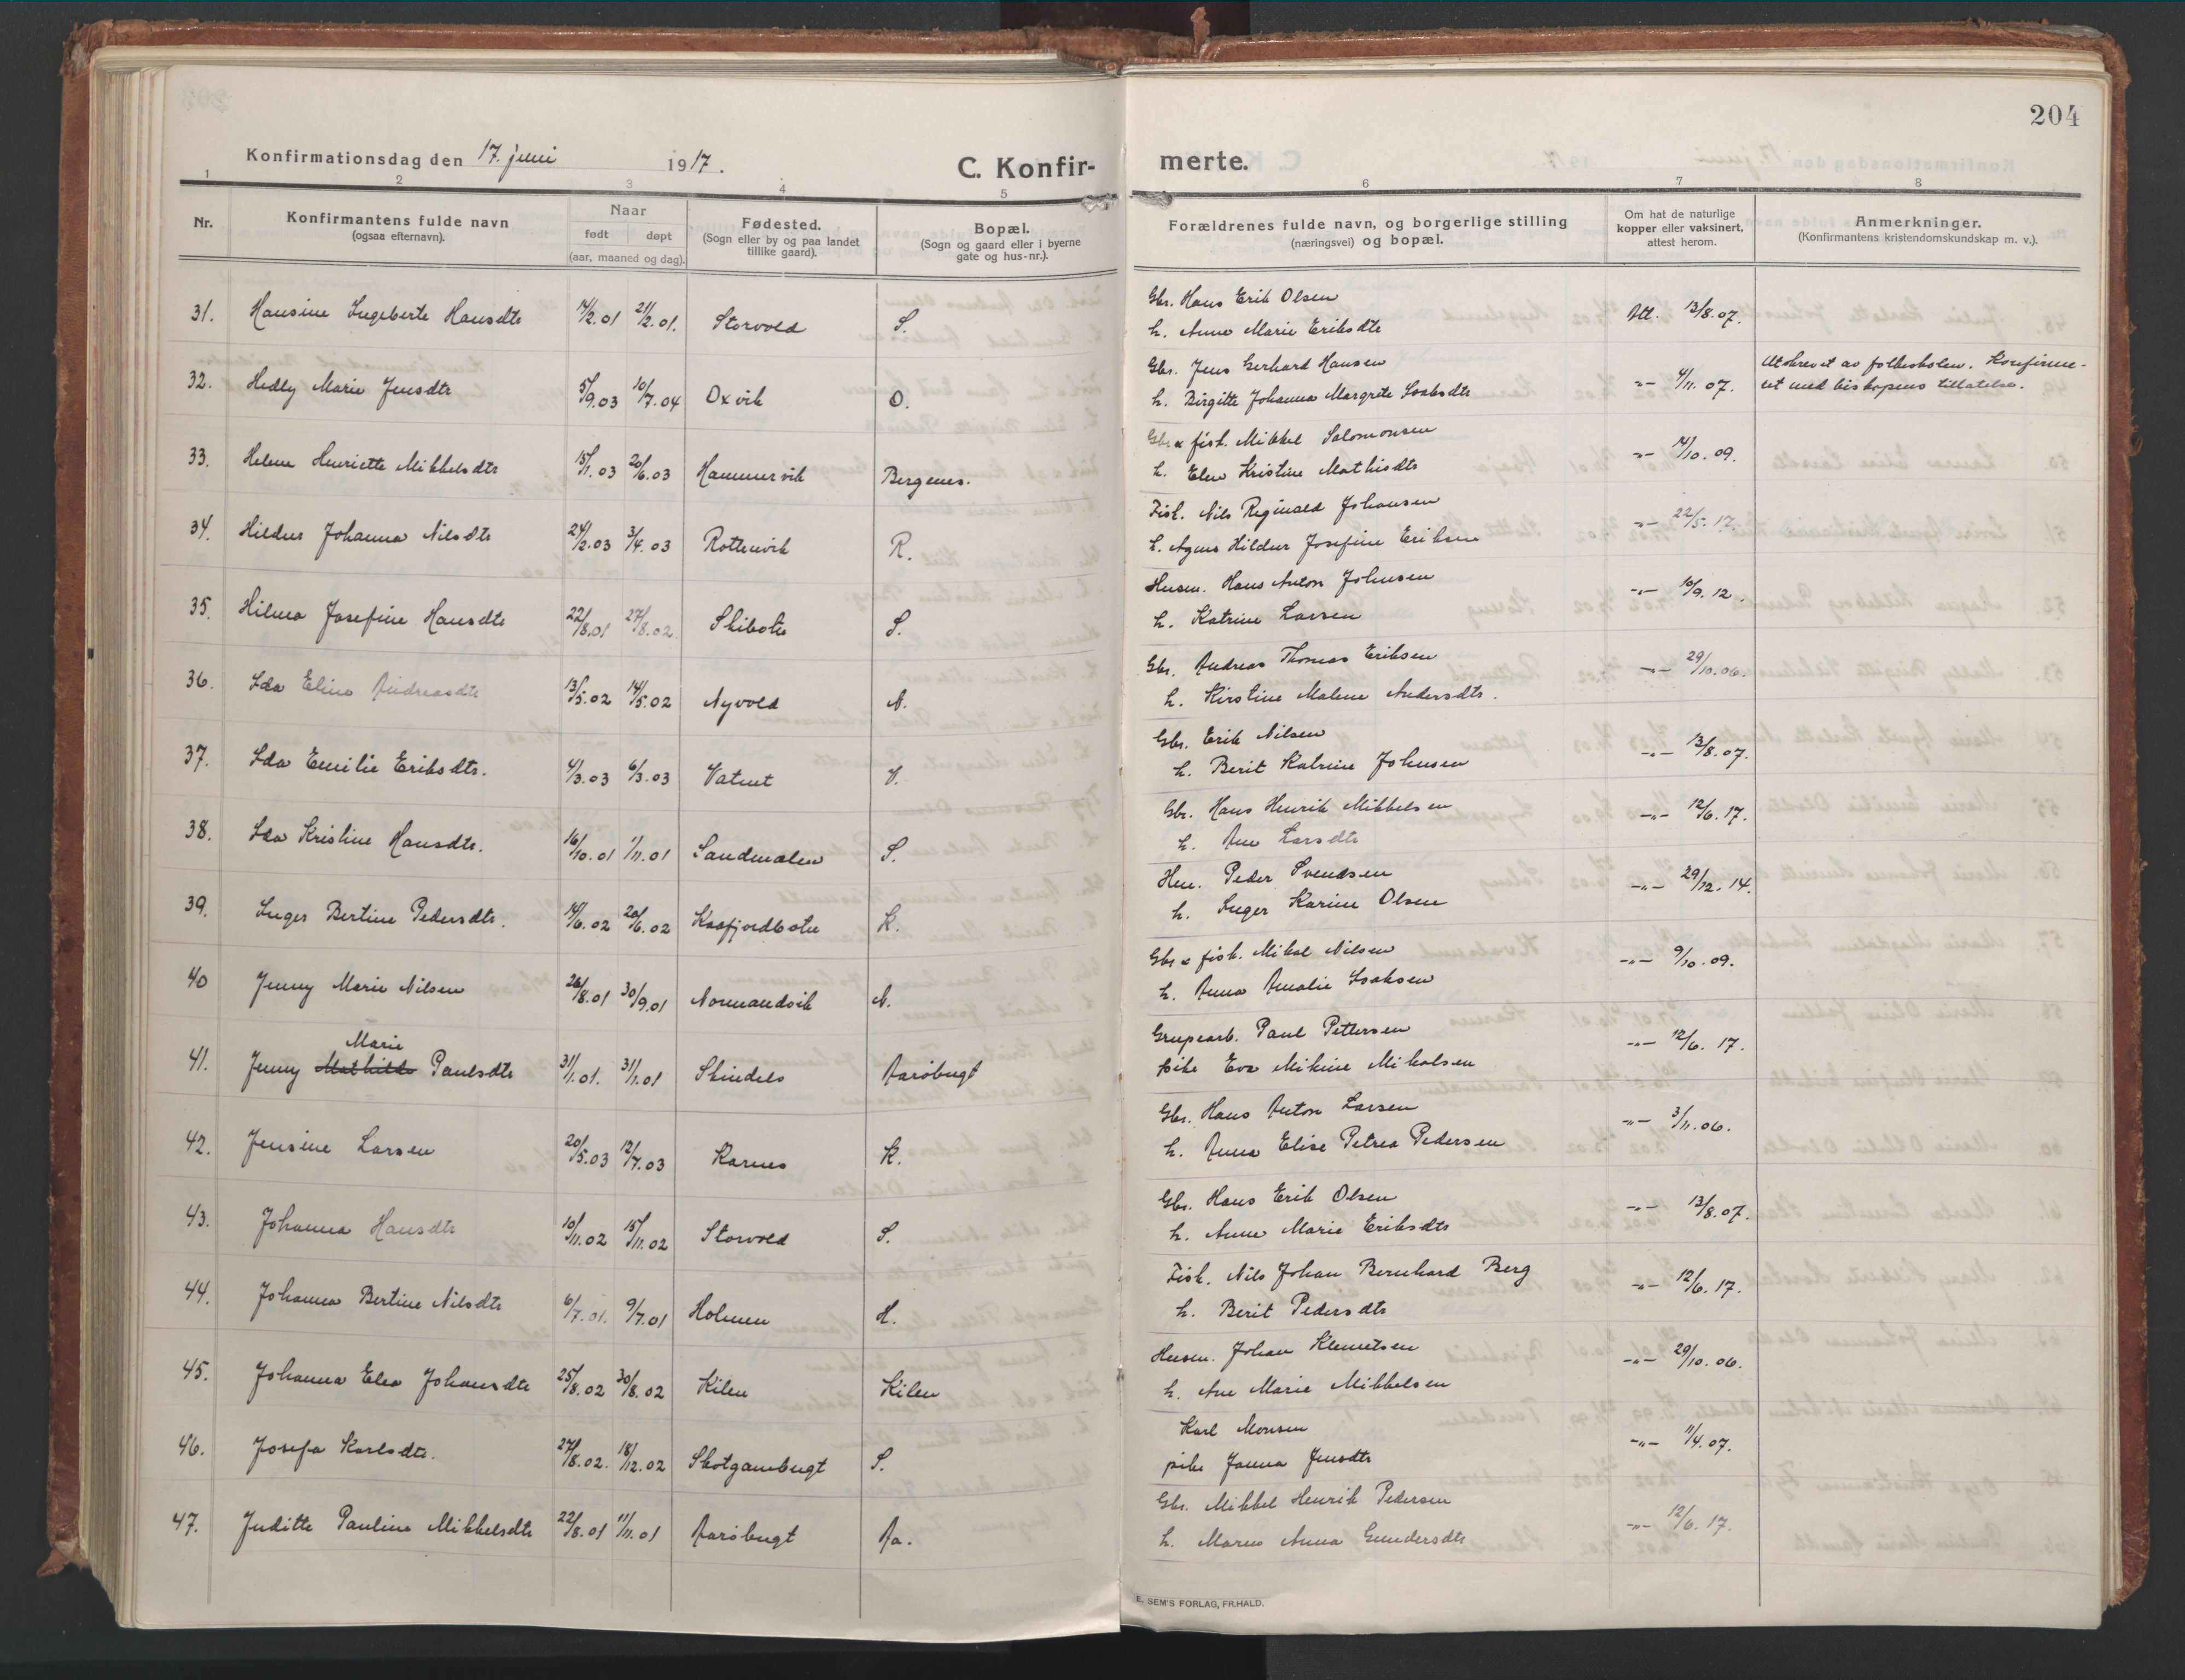 204
Konfirmationsdag den 17. juni 1917.
C. Konfir-
merte.
1 2 3 4 5 6 7 8
Nr.
Konfirmantens fulde navn
(ogsaa efternavn).
Naar
født døpt
(aar, maaned og dag).
Fødested.
(Sogn eller by og paa landet
tillike gaard).
Bopæl.
(Sogn og gaard eller i byerne
gate og hus-nr.).
Forældrenes fulde navn, og borgerlige stilling
(næringsvei) og bopæl.
Om hat de naturlige
kopper eller vaksinert,
attest herom.
Anmerkninger.
(Konfirmantens kristendomskundskap m. v.).
31. Hansine Ingeberte Hansdtr 14/2.01 21/2.01. Storvold S. Gbr. Hans Erik Olsen Att. 13/8.07.
h. Anne Marie Eriksdtr
32. Hedly Marie Jensdtr 5/9.03 10/7.04 Oxvik O. Gbr. Jens Gerhard Hansen -"- 4/11.07. Utskrevet av folkeskolen. Konfirme-
h. Birgitte Johanna Margrete Isaksdtr ret med biskopens tillatelse.
33. Helene Henriette Mikkelsdtr 15/1.03 20/6.03 Hammervik Bergenes. Gbr & fisk. Mikkel Salomonsen -"- 14/10.09.
h. Elen Kristine Mathisdtr
34. Hildur Johanna Nilsdtr 24/2.03 3/4.03 Rottenvik R. Fisk. Nils Reginald Johansen -"- 22/5.17.
h. Agnes Hildur Josefine Eriksen
35. Hilma Josefine Hansdtr 22/8.01 27/8.02 Skibotn S. Husm. Hans Anton Johnsen -"- 10/9.12.
h. Katrine Larsen
36. Ida Elina Andreasdtr 13/5.02 14/5.02 Nyvold N. Gbr. Andreas Thomas Eriksen -"- 29/10.06.
h. Kirstine Malene Andersdtr.
37. Ida Emilie Eriksdtr. 4/3.03 6/3.03 Vatnet V. Gbr. Erik Nilsen -"- 13/8.07.
h. Berit Katrine Johnsen
38. Ida Kristine Hansdtr. 16/10.01 1/11.01 Sandmælen S. Gbr. Hans Henrik Mikkelsen -"- 12/6.17.
h. Ane Larsdtr
39. Inger Bertine Pedersdtr. 14/6.02 20/6.02 Kaafjordbotn K. Hm. Peder Svendsen -"- 29/12.14.
h. Inger Karine Olsen
40 Jenny Marie Nilsen 26/8.01 30/9.01 Normandvik N. Gbr & fisk. Mikal Nilsen -"- 9/10.09.
h. Anna Amalie Isaksen
Marie
41. Jenny Mathilde Paulsdtr 31/1.01. 31/1.01 Skindelv Aarøbugt Grupearb. Paul Pettersen -"- 12/6.17.
pike Eva Mikine Mikalsen
42. Jensine Larsen 20/5.03 12/7.03 Karnes K. Gbr. Hans Anton Larsen -"- 3/11.06.
h. Anna Elise Petrea Pedersen
43. Johanna Hansdtr 10/11.02 15/11.02 Storvold S. Gbr. Hans Erik Olsen -"- 13/8.07.
h. Anne Marie Eriksdtr
44. Johanna Bertine Nilsdtr 6/7.01. 9/7.01 Holmen H. Fisk. Nils Johan Bernhard Berg -"- 12/6.17.
h. Berit Pedersdtr
45. Johanna Elea Johansdtr 25/8.02 30/8.02 Kilen Kilen Husm. Johan Klemetsen -"- 29/10.06.
h. Ane Marie Mikkelsen
46. Josefa Karlsdtr. 27/8.02. 18/12.02 Skotgambugt S. Karl Monsen -"- 11/4.07.
pike Janna Jensdtr
47. Juditte Pauline Mikkelsdtr 22/8.01 11/11.01 Aarøbugt Aa. Gbr. Mikkel Henrik Pedersen -"- 12/6.17.
h. Maren Anna Gundersdtr
E. SEM'S FORLAG, FR.HALD.